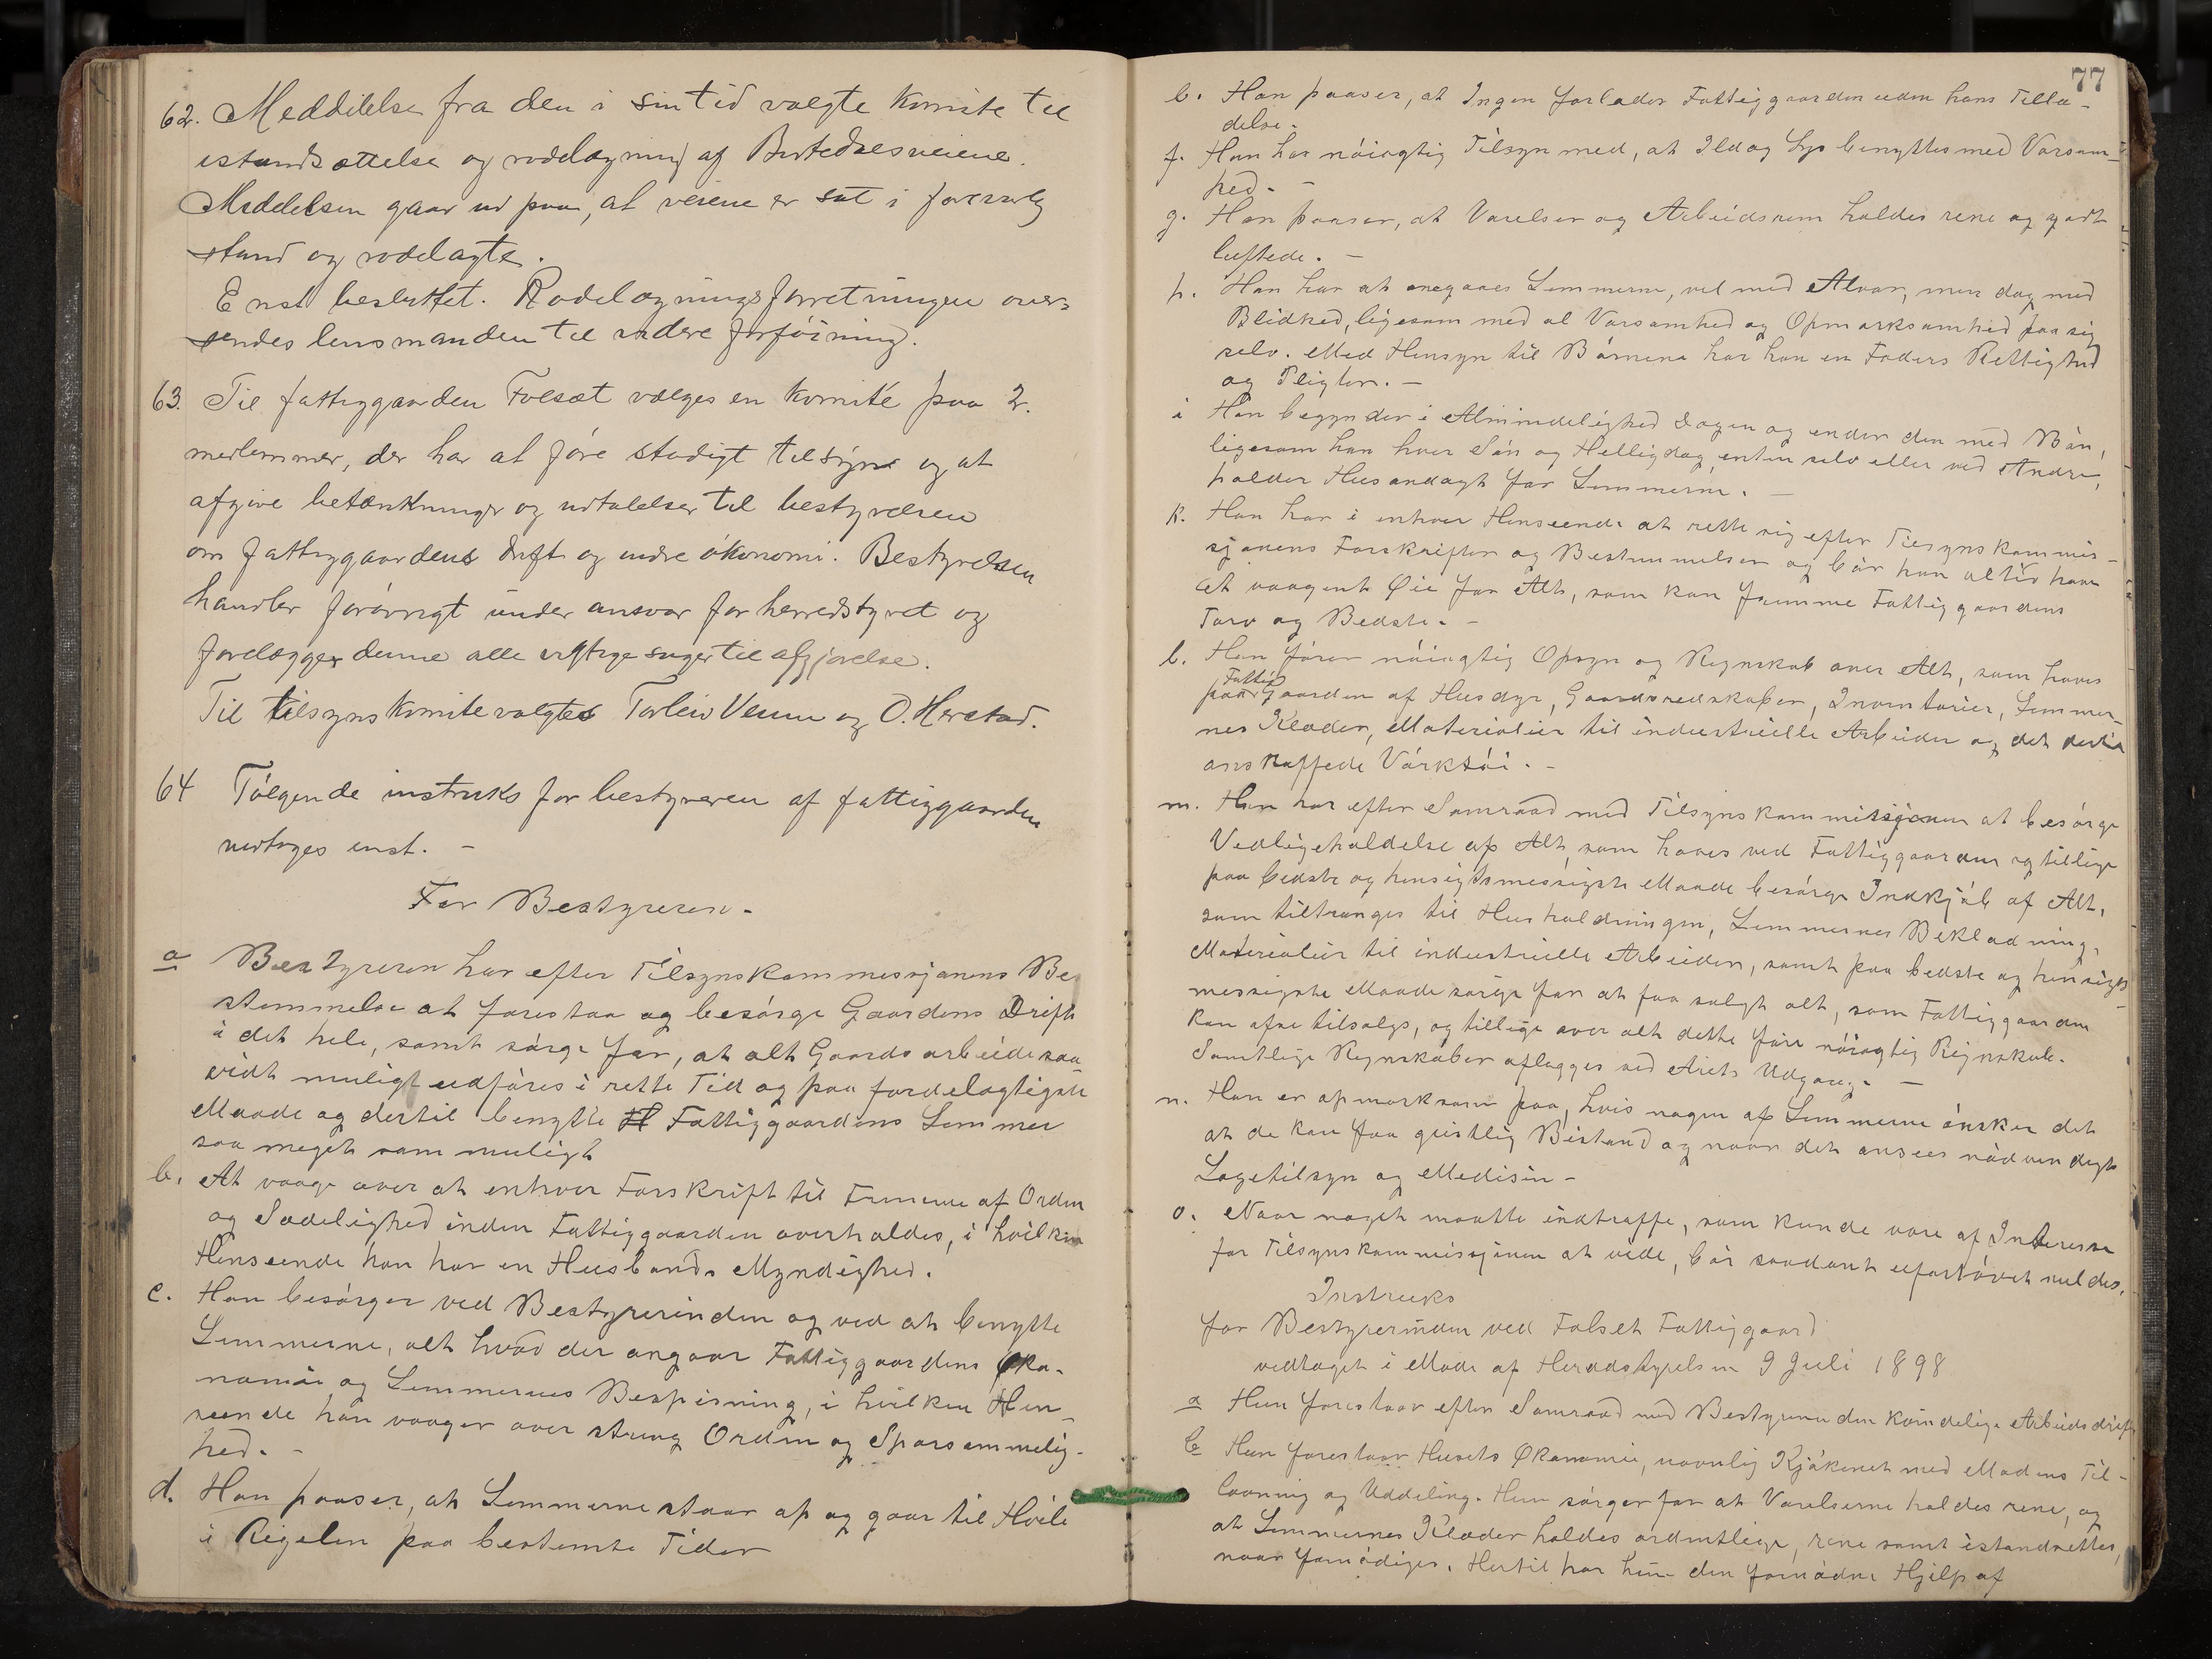 62. Meddelelse fra den i sin tid valgte komite til
istandsættelse og rodelægning af Bustedsesveiene.
Meddelelsen gaar ud paa, at veiene er sat i forsvarlig
stand og rodelagte.
Enst besluttet. Rodelægningsforretningen over-
sendes lensmanden til videre forföining.
63. Til fattiggaarden Folsæt vælges en komité paa 2.
medlemmer, der har at före stadigt tilsyn og at
afgive betænkninger og udtalelser til bestyrelsen
om fattiggaardens drift og indre ökonomi. Bestyrelsen
handler forövrigt under ansvar for herredstyret og
forelægger denne alle vigtige sager til afgjörelse.
Til tilsynskomite valgtes Torleiv Venm og O. Herstad.
64 Fölgende instruks for bestyreren af fattiggaarden
vedtages enst. -
For Bestyreren.
a Bestyreren har efter Tilsynskommissjonens Be
stemmelse at forestaa og besörge Gaardens Drift
i det hele, samt sörge for, at alt Gaardsarbeide saa
vidt muligt udföres i rette Tid og paa fordelagtigste
Maade og dertil benytte Fattiggaardens Lemmer
saa meget som muligt
b. At vaage over at enhver Forskrift til Fremme af Orden
og Sædelighed inden Fattiggaarden overholdes, i hvilken
Henseende han har en Husbonds Myndighed.
c. Han besörger ved Bestyrerinden og ved at benytte
Lemmerne, alt hvad der angaar Fattiggaardens Øko-
nomie og Lemmernes Bespisning, i hvilken Hen-
seende han vaager over streng Orden og Sparsommelig-
hed. -
d. Han paaser, at Lemmerne staar op og gaar til Hvile
i Regelen paa bestemte Tider
77
e. Han paaser, at Ingen forlader Fattiggaarden uden hans Tilla-
delse.
f. Han har nöiagtig Tilsyn med, at Ild og Lys benyttes med Varsom-
hed. -
g. Han paaser, at Værelser og Arbeidsrum holdes rene og godt
luftede. -
h. Han har at omgaaes Lemmerne, vel med Alvor, men dog med
Blidhed, ligesom med al Varsomhed og Opmærksomhed paa sig
selv. Med Hensyn til Börnene har han en Faders Rettighed
og Pligter. -
i Han begynder i Almindelighed Dagen og ender den med Bön,
ligesom han hver Sön og Helligdag, enten selv eller ved Andre,
holder Husandagt for Lemmerne. -
k. Han har i enhver Henseende at rette sig efter Tilsynskommis-
sjonens Forskrifter og Bestemmelser og bör han altid have
et vaagent Øie for Alt, som kan fremme Fattiggaardens
Tarv og Bedste. -
l. Han förer nöiagtig Opsyn og Regnskab over Alt, som haves
paa Fattig Gaarden af Husdyr, Gaardsredskaber, Inventarier, Lemmer-
nes Klæder, Materialier til industrielle Arbeider og det dertil
anskaffede Værktöi. -
m. Han har efter Samraad med Tilsynskommissjonen at besörge
Vedligeholdelse af Alt, som haves ved Fattiggaarden og tillige
paa bedste og hensigtsmessigste Maade besörge Indkjöb af Alt,
som tiltrænges til Husholdningen, Lemmernes Beklædning,
Materialier til industrielle Arbeider, samt paa bedste og hensigts
messigste Maade sörge for at faa solgt alt, som Fattiggaarden
kan afse tilsalgs, og tillige over alt dette före nöiagtig Regnskab.
Samtlige Regnskaber aflægges ved Aarets Udgang. -
n. Han er opmærksom paa, hvis nogen af Lemmerne önsker det
at de kan faa geistlig Bistand og naar det ansees nödvendigt
Lægetilsyn og Medisin -
o. Naar noget maatte indtræffe, som kunde være af Interesse
for Tilsynskommissjonen at vide, bör saadant ufortövet meldes.
Instruks
for Bestyrerinden ved Folset Fattiggaard
vedtaget i Möde af Heredstyrelsen 9 Juli 1898
a Hun forestaar efter Samraad med Bestyreren den kvindelige Arbeidsdrift
b Hun forestaar Husets Økonomie, navnlig Kjökenet med Madens Til-
lavning og Uddeling. Hun sörger for at Værelserne holdes rene, og
at Lemmernes Klæder holdes ordentlige, rene samt istandsettes,
naar fornödiges. Hertil har hun den fornödne Hjelp af